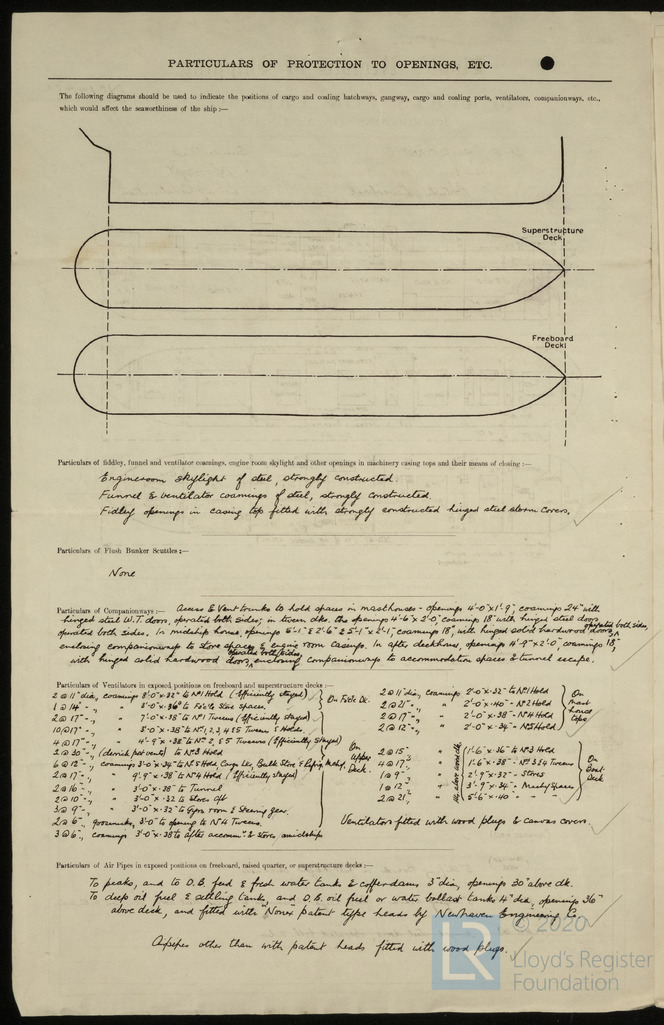 PARTICULARS OF PROTECTION TO OPENINGS, ETC.
The following diagrams should be used to indicate the positions of cargo and coaling hatchways, gangway, cargo and coaling ports, ventilators, companionways, etc.,
which would affect the seaworthiness of the ship :—
Superstructure
Deck
Freeboard
Deck
Particulars of fiddley, funnel and ventilator coamings, engine room skylight and other openings in machinery casing tops and their means of closing :—
Engineroom skylight of steel, strongly constructed.
Funnel & ventilator coamings of steel, strongly constructed.
Fidley openings in casing top fitted with strongly constructed hinged steel storm covers.
Particulars of Flush Bunker Scuttles :—
None
Particulars of Companionways :— Access & Vent trunks to hold spaces in masthouses - openings 4'-0" x 1'-9", coamings 24" with
hinged steel W.T. doors, operated both sides; in tween dks. the openings 4'-6" x 2'-0", coamings 18" with hinged steel doors
operated both sides. In midship house, openings 5'-1" & 2'-6" & 5'-1" x 2'-1", coamings 18", with hinged solid hardwood doors, operated both sides,
enclosing companionways to store spaces & engine room casings. In after deckhouse, openings 4'-9" x 2'-0", coamings 18",
with hinged solid hardwood doors, operated both sides, enclosing companionways to accommodation spaces & tunnel escape.
Particulars of Ventilators in exposed positions on freeboard and superstructure decks :—
2 @ 11" dia, coamings 3'-0" x .32" to No 1 Hold (Efficiently stayed)
1 @ 14" " " 3'-0" x .36" to Fo'c'le Store spaces.
On Fo'c'le Dk.
2 @ 17" " " 7'-0" x .38" to No 1 Tweens (Efficiently stayed)
10 @ 17" " " 3'-0" x .38" to Nos 1, 2, 3, 4 & 5 Tweens & Holds.
4 @ 17" " " 4'-9" x .38" to Nos 2, & 5 Tweens (Efficiently stayed)
2 @ 30" " (derrick post vents) to No 3 Hold
6 @ 12" " coamings 3'-0" x .34" to No 5 Hold,
2 @ 17" " " 9'-9" x .38" to No 4 Hold (Efficiently stayed)
2 @ 16" " " 3'-0" x .38" to Tunnel
2 @ 10" " " 3'-0" x .32 to Stores Aft
3 @ 9" " " 3'-0" x .32" to Gyro room & Steering gear.
2 @ 6" " goosenecks, 3'-0" to opening to No 4 Tweens.
3 @ 6" " coamings 3'-0" x .38 to after accommn & stores, amidships
On
Upper
Deck.
2 @ 11" dia, coamings 2'-0" x .32" to No 1 Hold
2 @ 21" " " 2'-0" x .40" - No 2 Hold
2 @ 17" " " 2'-0" x .38" - No 4 Hold
2 @ 12" " " 2'-0" x .34" - No 5 Hold
On
mast
house
tops
2 @ 15" " 1'-6" x .36" to No 3 Hold
4 @ 17" " 1'-6" x .38" - No 3 & 4 Tweens
1 @ 9" " 2'-9" x .32" - Stores
1 @ 12" " 3'-9" x .34" - Machy Spaces
2 @ 21" " 5'-6" x .40"
On
Boat
Deck
Ventilators fitted with wood plugs & canvas covers.
Particulars of Air Pipes in exposed positions on freeboard, raised quarter, or superstructure decks :—
To peaks, and to D.B. feed & fresh water tanks & cofferdams 3" dia, openings 30" above dk.
To deep oil fuel & settling tanks, and D.B. oil fuel or water ballast tanks 4" dia, openings 36"
above deck, and fitted with "Norex" patent type heads by Newhaven Engineering Co.
Airpipes other than with patent heads fitted with wood plugs.
© 2020
LR
Lloyd's Register
Foundation